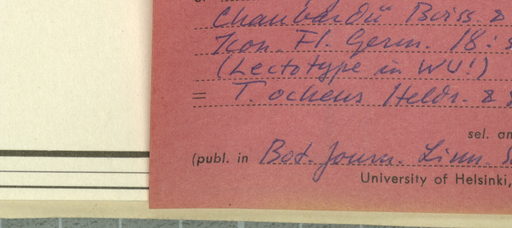 Chaubardii Boiss. &
Icon. Fl. Germ. 18:
(Lectotype in WU!)
= T. ochleus Heldr. &
sel. an
(publ. in Bot. Journ. Linn. S
University of Helsinki,